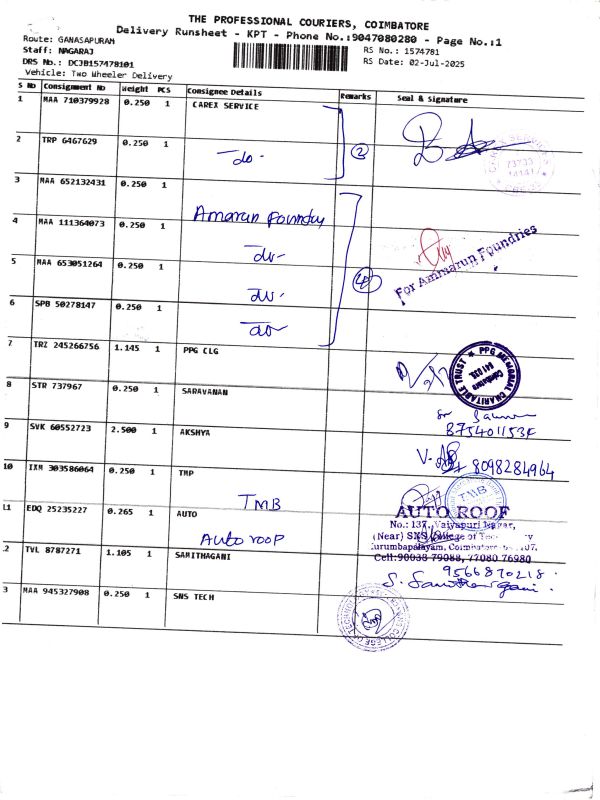 THE PROFESSIONAL COURIERS, COIMBATORE
Delivery Runsheet - KPT - Phone No.:9047080280 - Page No.:1
Route: GANASAPURAM
Staff: NAGARAJ
RS No.: 1574781
DRS No.: DCJB157478101
RS Date: 02-Jul-2025
Vehicle: Two Wheeler Delivery
S No Consignment No Weight PCS Consignee Details Remarks Seal & Signature
1 MAA 710379928 0.250 1 CAREX SERVICE
2 TRP 6467629 0.250 1 -do- 2
3 MAA 652132431 0.250 1 Amarun Foundry
4 MAA 111364073 0.250 1 -do-
For Ammarun Foundries
5 MAA 653051264 0.250 1 -do- 4
6 SPB 50278147 0.250 1 -do-
7 TRZ 245266756 1.145 1 PPG CLG
PPG MEMORIAL CHARITABLE TRUST
Coimbatore
641 035
8 STR 737967 0.250 1 SARAVANAN
9 SVK 60552723 2.500 1 AKSHYA
8098284964
10 IXM 303586064 0.250 1 TMP
TMB
TMB
11 EDQ 25235227 0.265 1 AUTO
Auto roop
AUTO ROOF
No.: 137, Vaiyapuri Nagar,
(Near) SNS College of
Kurumbapalayam, Coimbatore
Cell:90038 79088, 77080 76980
12 TVL 8787271 1.105 1 SAMITHAGANI
9566870218
13 MAA 945327908 0.250 1 SNS TECH